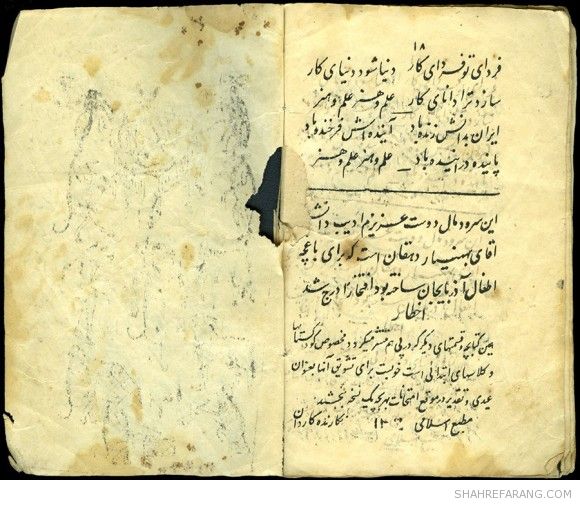 ۱۸
فردای تو فردای کار دنیا شود دنیای کار
سازد ترا دانای کار _ علم و هنر علم و هنر
ایران بدانش زنده باد آینده اش فرخنده باد
پاینده در آینده باد _ علم و هنر علم و هنر
این سرود مال دوست عزیزم ادیب دانش
آقای بهمنیار دهقان است که برای باغچه
اطفال آذربایجان ساخته بود افتخارا درج شد
اخطار
همین کتابچه و قسمتهای دیگر که در پی هم منتشر میگردد مخصوص کودکستان
و کلاسهای ابتدائی است خوبست برای تشویق آنها بعنوان
عیدی و تقدیر در موقع امتحانات بهر بچه یک نسخه بخشند
مطبع اسلامی نگارنده کاردان
SHAHREFARANG.COM